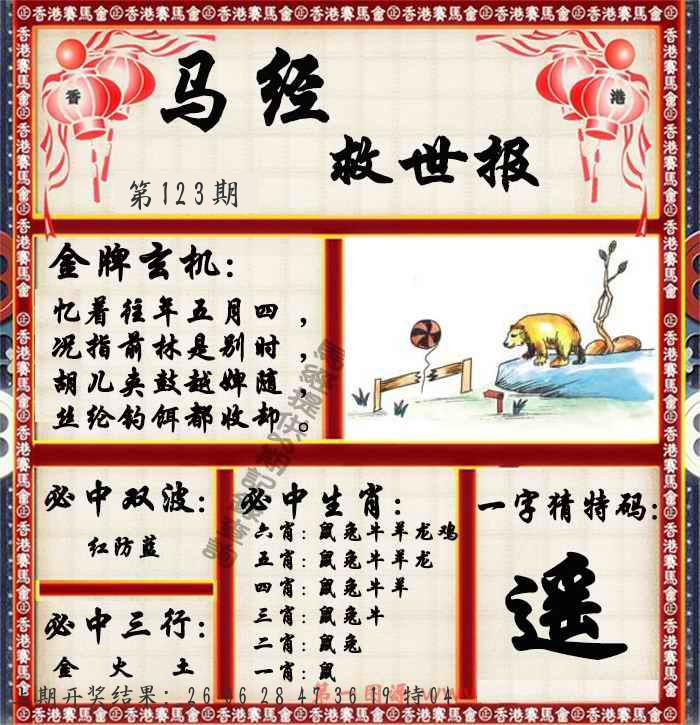 香港賽馬會 香港賽馬會 香港賽馬會 香港賽馬會 香港賽馬會 香港賽馬會
香
港
马经
救世报
第123期
金牌玄机：
忆着往年五月四，
况指前林是别时，
胡儿夹鼓越婢随，
丝纶钓饵都收却。
必中双波：
红防蓝
必中三行：
金 火 土
必中生肖：
六肖：鼠兔牛羊龙鸡
五肖：鼠兔牛羊龙
四肖：鼠兔牛羊
三肖：鼠兔牛
二肖：鼠兔
一肖：鼠
一字猜特码：
遥
期开奖结果：26 06 28 47 36 19 特04
第一图源